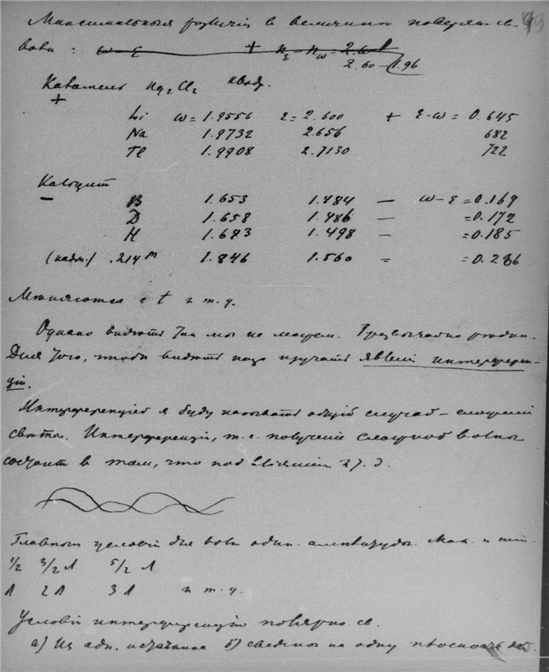 93
Максимальныя разности в величины поверхн. св.
волн :
+
2.60 – 1.96
Каломель Hg2Cl2 квадр.
+
Li ω = 1.9556 ε = 2.600 + ε-ω = 0.645
Na 1.9732 2.656 682
Tl 1.9908 2.7130 722
Кальцит
–
B 1.653 1.484 – ω-ε = 0.169
D 1.658 1.486 – = 0.172
H 1.683 1.498 – = 0.185
.214 м 1.846 1.560 = = 0.286
Меняются с t и т. д.
Однако видеть так мы не можем.
Для того, чтобы видеть надо изучать явленiя интерферен-
цiи.
Интерференцiей я буду называть общiй случай – сложенiя
света. Интерференцiя, т. е. получение сложной волны
состоит в том, что под влiянiем 2
Главныя условiя для волн один. амплитуды. Мак. и
1/2 3/2 λ 5/2 λ
λ 2λ 3λ и т. д.
Условiя интерференцiи поляриз. св.
a) Из одн. источника б) сведены на одну плоскость